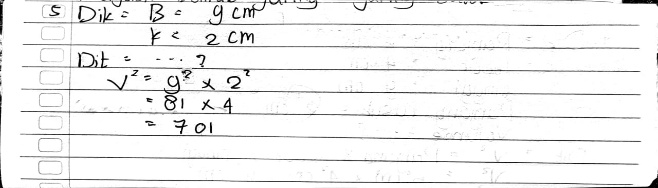 5 Dik = B = 9 cm
k = 2 cm
Dit = ... ?
V² = 9² x 2²
= 81 x 4
= 701